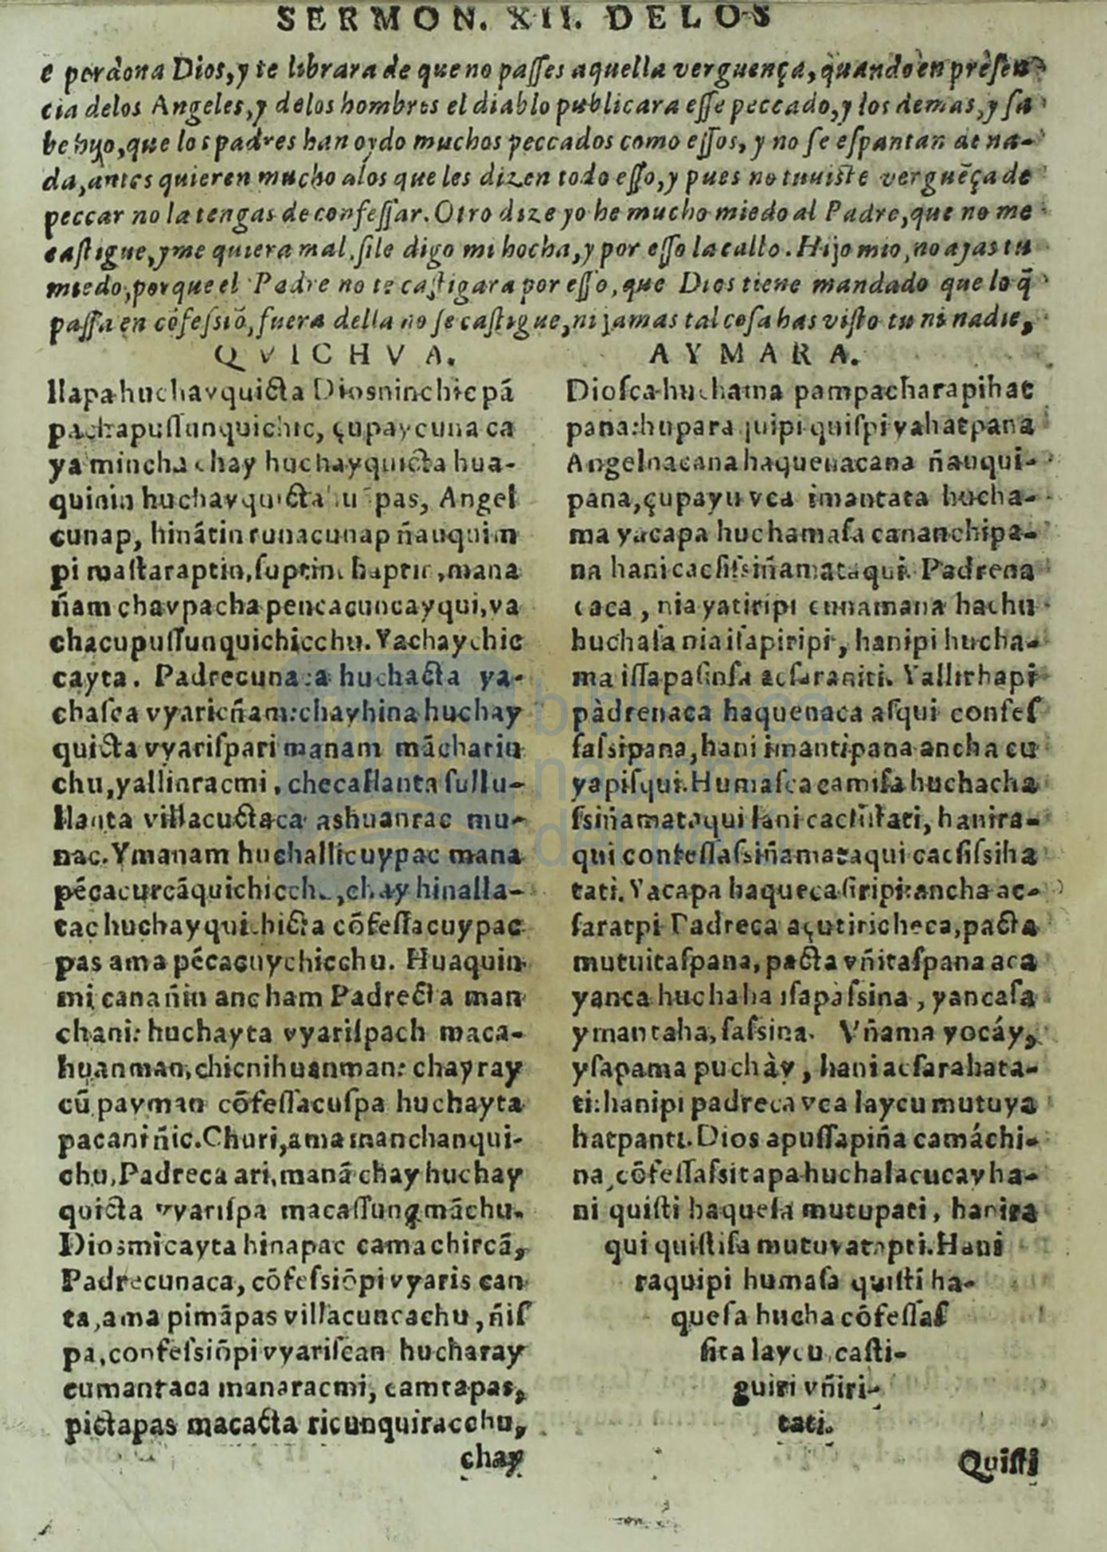 SERMON. XII. DELOS
e perdona Dios, y te librara de que no passes aquella verguença, quando en presen-
cia delos Angeles, y delos hombres el diablo publicara esse peccado, y los demas, y sa
be hijo, que los padres han oydo muchos peccados como essos, y no se espantan de na-
da, antes quieren mucho alos que les dizen todo esso, y pues no tuuiste verguẽça de
peccar no la tengas de confessar. Otro dize yo he mucho miedo al Padre, que no me
castigue, y me quiera mal, si le digo mi hocha, y por esso la callo. Hijo mio, no ayas tu
miedo, porque el Padre no te castigara por esso, que Dios tiene mandado que lo q̃
passa en cõfessiõ, fuera della no se castigue, ni jamas tal cosa has visto tu ni nadie,
QVICHVA.
llapa huchayquicta Diosninchic pã
pachapussunquichic, çupaycuna ca
ya mincha chay huchayquicta hua-
quinin huchayquicta pas, Angel
cunap, hinãtin runacunap ñauquim
pi mastaraptin, mana
ñam chaypacha pencacuncayqui, ya
chacupussunquichicchu. Yachaychic
cayta. Padrecuna huchacta ya-
chasca vyaricñam: chay hina huchay
quicta vyarispari manam mãchariu
chu, yallinracmi, checallanta sullu-
llanta villacuctaca ashuanrac mu-
nac. Ymanam huchallicuypac mana
pẽcacurcãquichicchu, chay hinalla-
tac huchayquichicta cõfessacuypac
pas ama pẽcacuychicchu. Huaquin
mi canañin ancham Padrecta man
chani: huchayta vyarispach maca-
huanman, chicnihuanman: chayray
cũ payman cõfessacuspa huchayta
pacaniñic. Churi, ama manchanqui-
chu, Padreca ari, manã chay huchay
quicta vyarispa macassungmãchu.
Diosmi cayta hinapac camachircã,
Padrecunaca, cõfessiõpi vyariscan
ta, ama pimãpas villacuncachu, ñis
pa, confessiõpi vyariscan hucharay
cumantaca manaracmi, camtapas,
pictapas macacta ricunquiracchu,
chay
AYMARA.
Diosca huchama pampacharapihat
pana: hupara quispiyahatpana
Angelnacana haquenacana ñauqui-
pana, çupayu vca imantata hucha-
ma yacapa huchamasa cananchipa-
na hani cacsissiñamataqui. Padrena
caca, nia yatiripi cunamana hachu
huchasa nia isapiripi, hanipi hucha-
ma issapasinsa acsaraniti. Yallirhapi
pàdrenaca haquenaca asqui confes
sassipana, hani imantipana ancha cu
yapisqui. Humasca camisa huchacha
ssiñamataqui hanira-
qui confessassiñamataqui cacsissiha
tati. Yacapa haqueca siripi: ancha ac-
saratpi Padreca açutiricheca, pacta
mutuitaspana, pacta vñitaspana aca
yanca huchaha isapàssina, yancasa
ymantaha, sassina. Vñama yocáy,
ysapama puchày, hani acsarahata-
ti: hanipi padreca vca laycu mutuya
hatpanti. Dios apussapiña camáchi-
na, cõfessassitapa huchalacucay ha-
ni quisti haquesa mutupati, hanira
qui quistisa mutuyatapti. Hani
raquipi humasa quisti ha-
quesa hucha cõfessas
sita laycu casti-
guiri vñiri-
tati.
Quisti